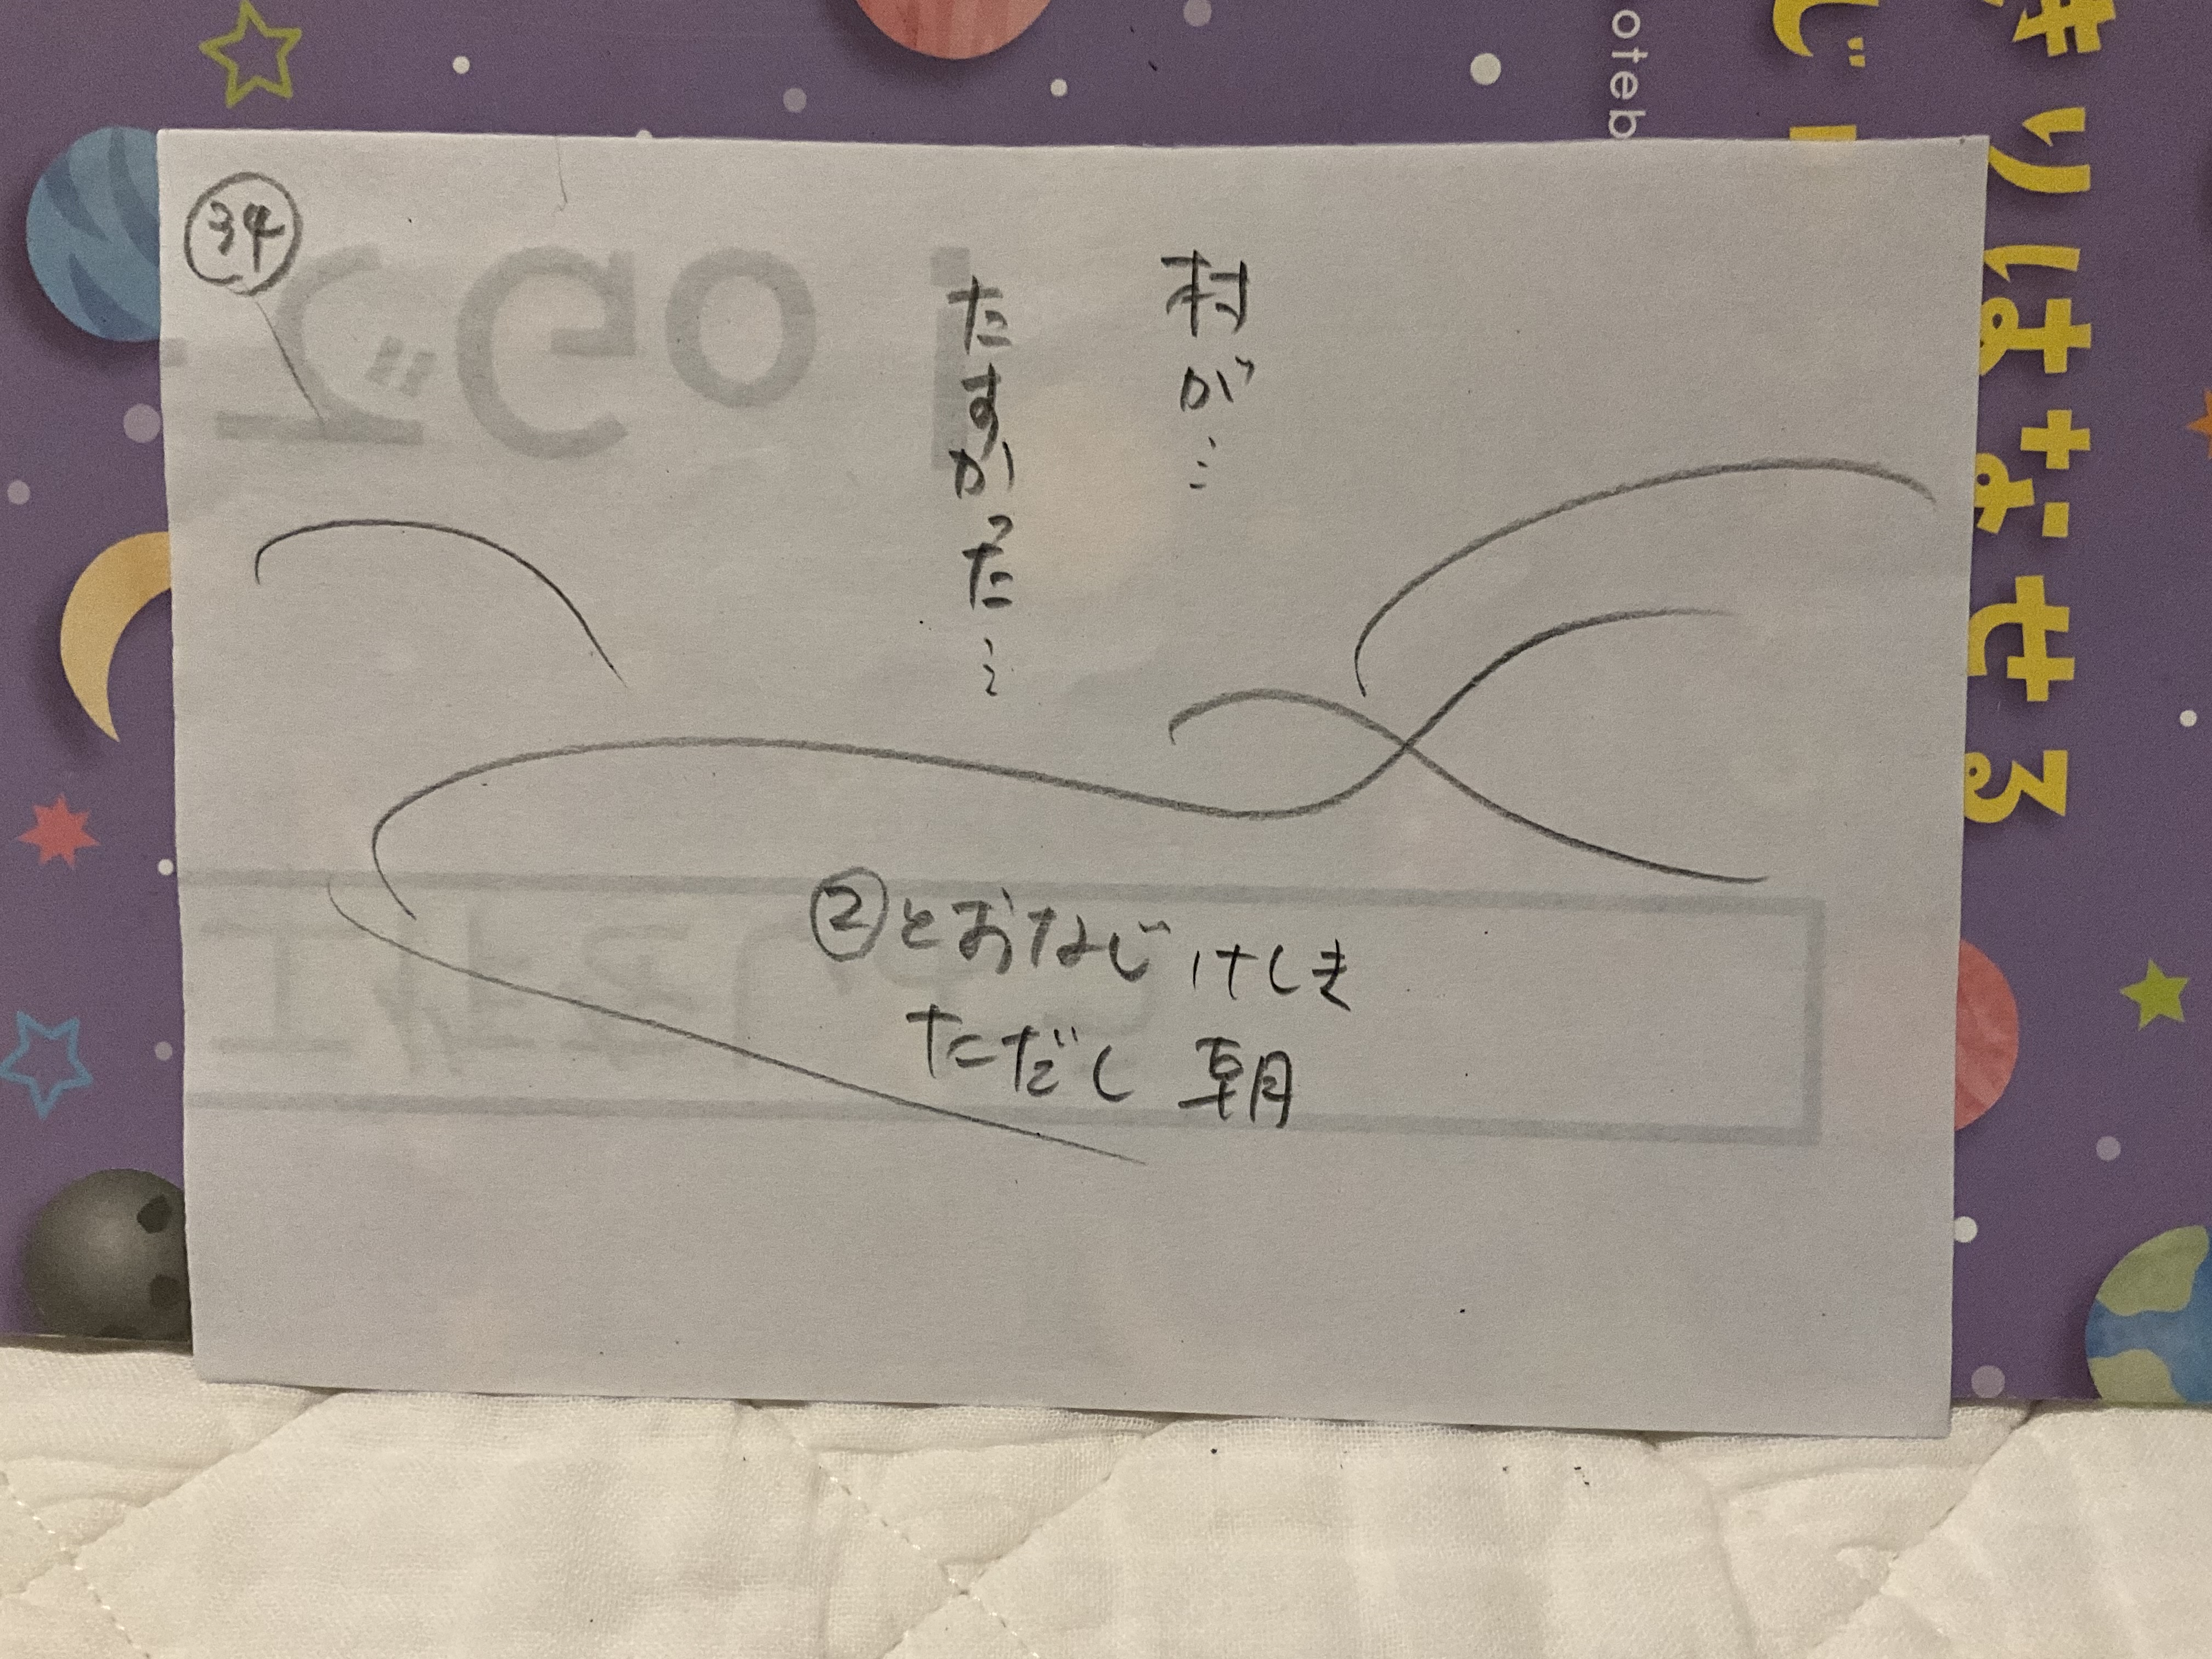 ㉞
村が…
たすかった…
②とおなじけしき
ただし 朝
oteb
きりはなせる